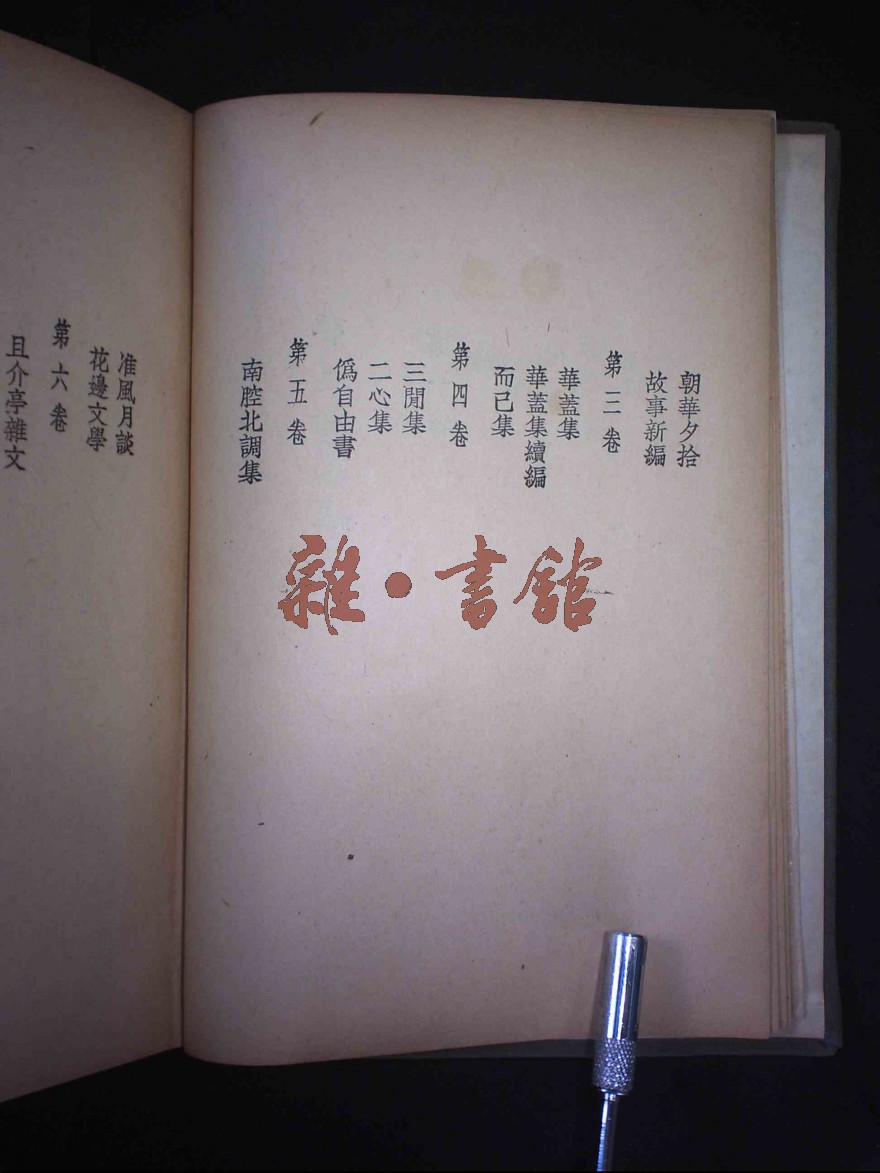 朝華夕拾
故事新編
第三卷
華蓋集
華蓋集續編
而已集
第四卷
三閒集
二心集
僞自由書
第五卷
南腔北調集
准風月談
花邊文學
第六卷
且介亭雜文
雜·書館